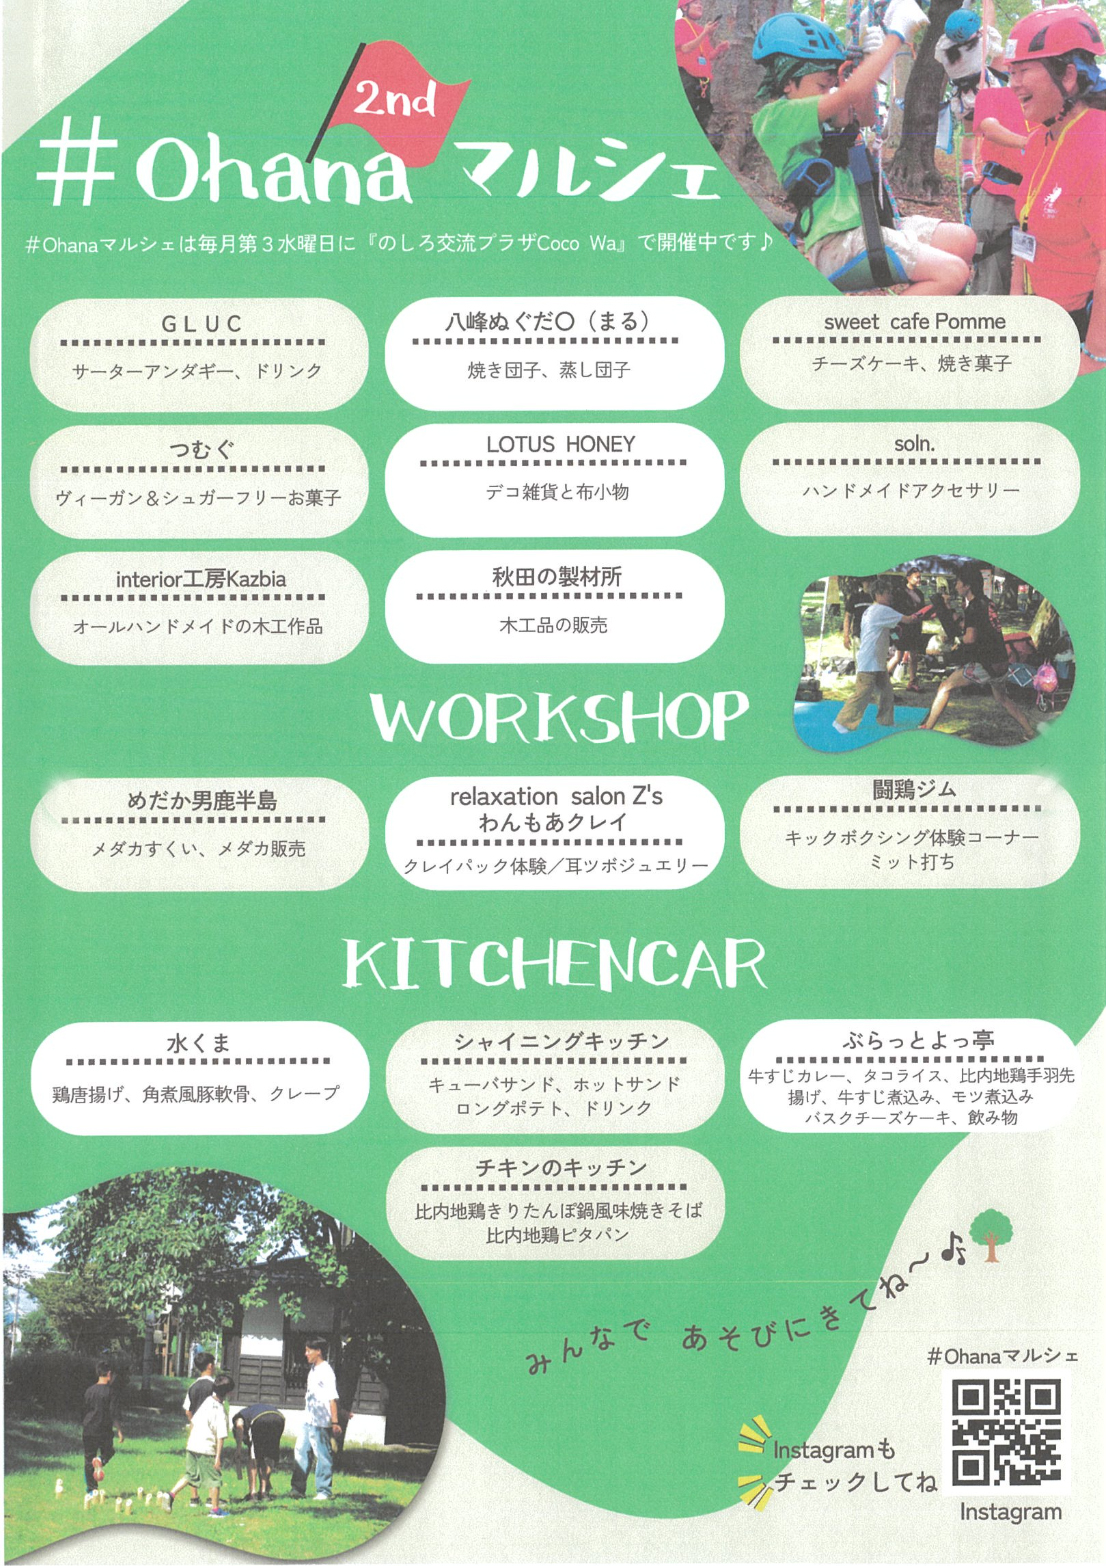 2nd
#Ohana マルシェ
#Ohanaマルシェは毎月第３水曜日に『のしろ交流プラザCoco Wa』で開催中です♪
ＧＬＵＣ
サーターアンダギー、ドリンク
八峰ぬぐだ〇（まる）
焼き団子、蒸し団子
sweet cafe Pomme
チーズケーキ、焼き菓子
つむぐ
ヴィーガン＆シュガーフリーお菓子
LOTUS HONEY
デコ雑貨と布小物
soln.
ハンドメイドアクセサリー
interior工房Kazbia
オールハンドメイドの木工作品
秋田の製材所
木工品の販売
WORKSHOP
めだか男鹿半島
メダカすくい、メダカ販売
relaxation salon Z's
わんもあクレイ
クレイパック体験／耳ツボジュエリー
闘鶏ジム
キックボクシング体験コーナー
ミット打ち
KITCHENCAR
水くま
鶏唐揚げ、角煮風豚軟骨、クレープ
シャイニングキッチン
キューバサンド、ホットサンド
ロングポテト、ドリンク
ぶらっとよっ亭
牛すじカレー、タコライス、比内地鶏手羽先
揚げ、牛すじ煮込み、モツ煮込み
バスクチーズケーキ、飲み物
チキンのキッチン
比内地鶏きりたんぽ鍋風味焼きそば
比内地鶏ピタパン
みんなで あそびにきてね〜♪
#Ohanaマルシェ
Instagramも
チェックしてね
Instagram